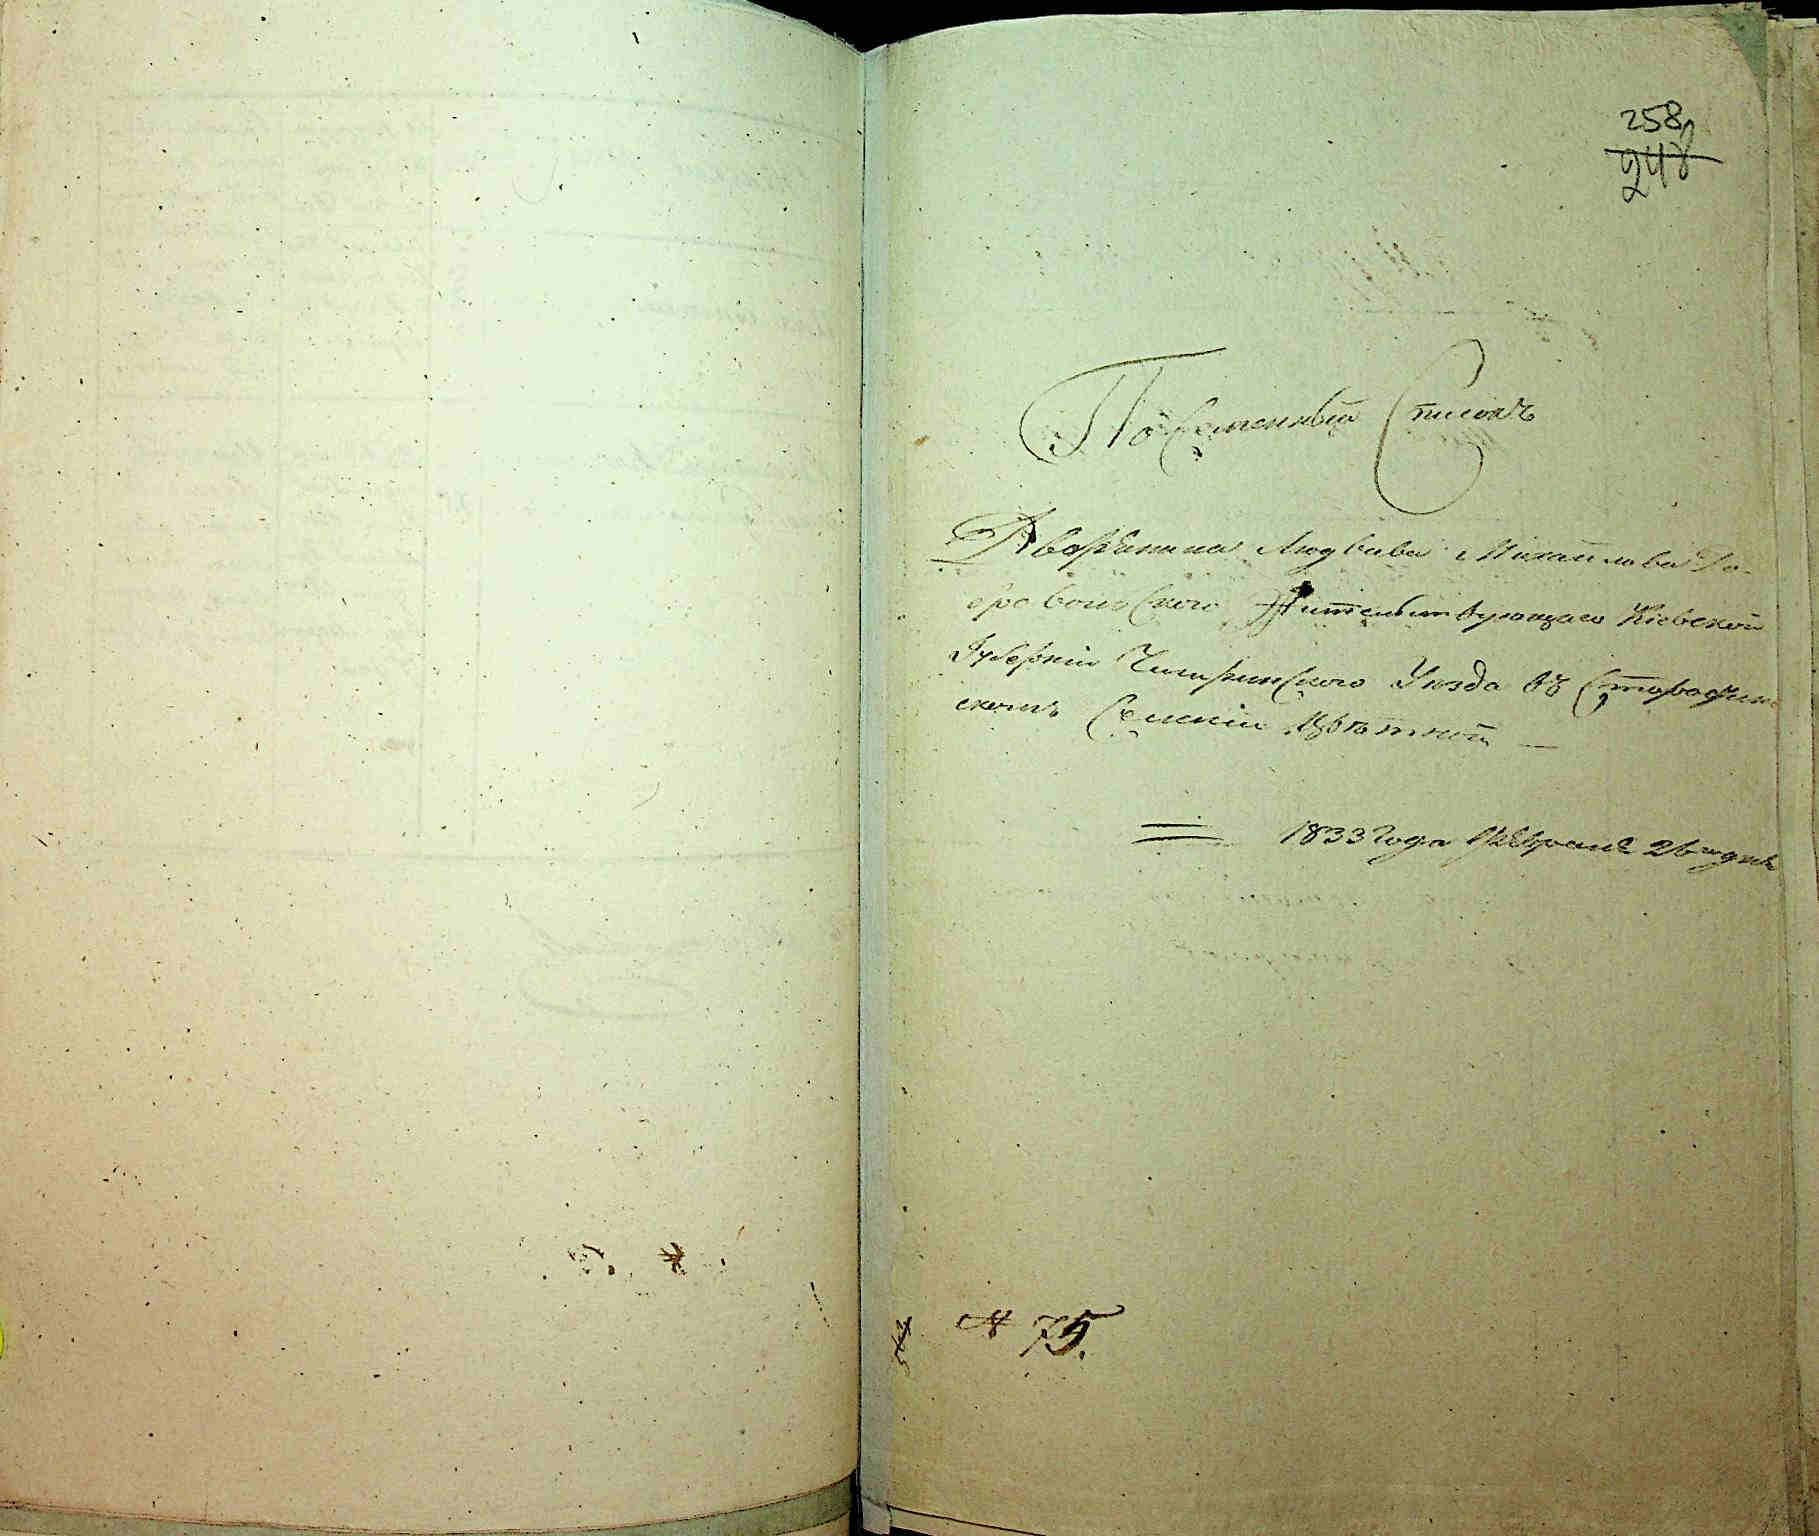 258
248
Посеменный Списокъ
Дворянина Людвика Михайлова До-
бровольского Жительствующаго Кіевской
Губерніи Чигиринского Уезда въ
скомъ Селеніи Цвѣтной —
1833 Года Февраля 26 дня
№ 75.